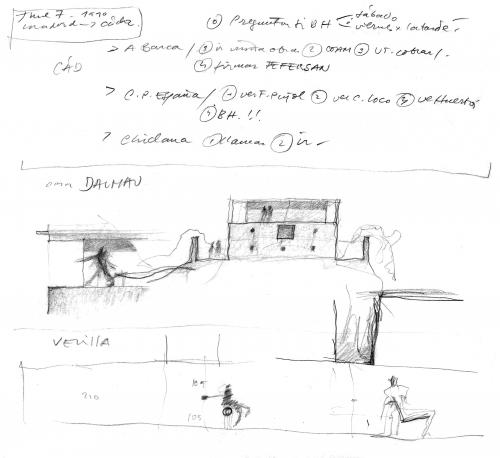 June 7. 1990
madrid → Cádiz
⓪ Preguntar si BH sábado
viernes x la tarde.
CÁD
> A Barca / ① ir visita obra ② COAM ③ VT-cobrar/.
④ firmar TEFERSAN
> C.P. España / ① ver F. Pujol ② ver C. Loco ③ ver Huerta
④ BH. !!
> Chiclana ① llamar ② ir
DALMAU
VELILLA
210
105